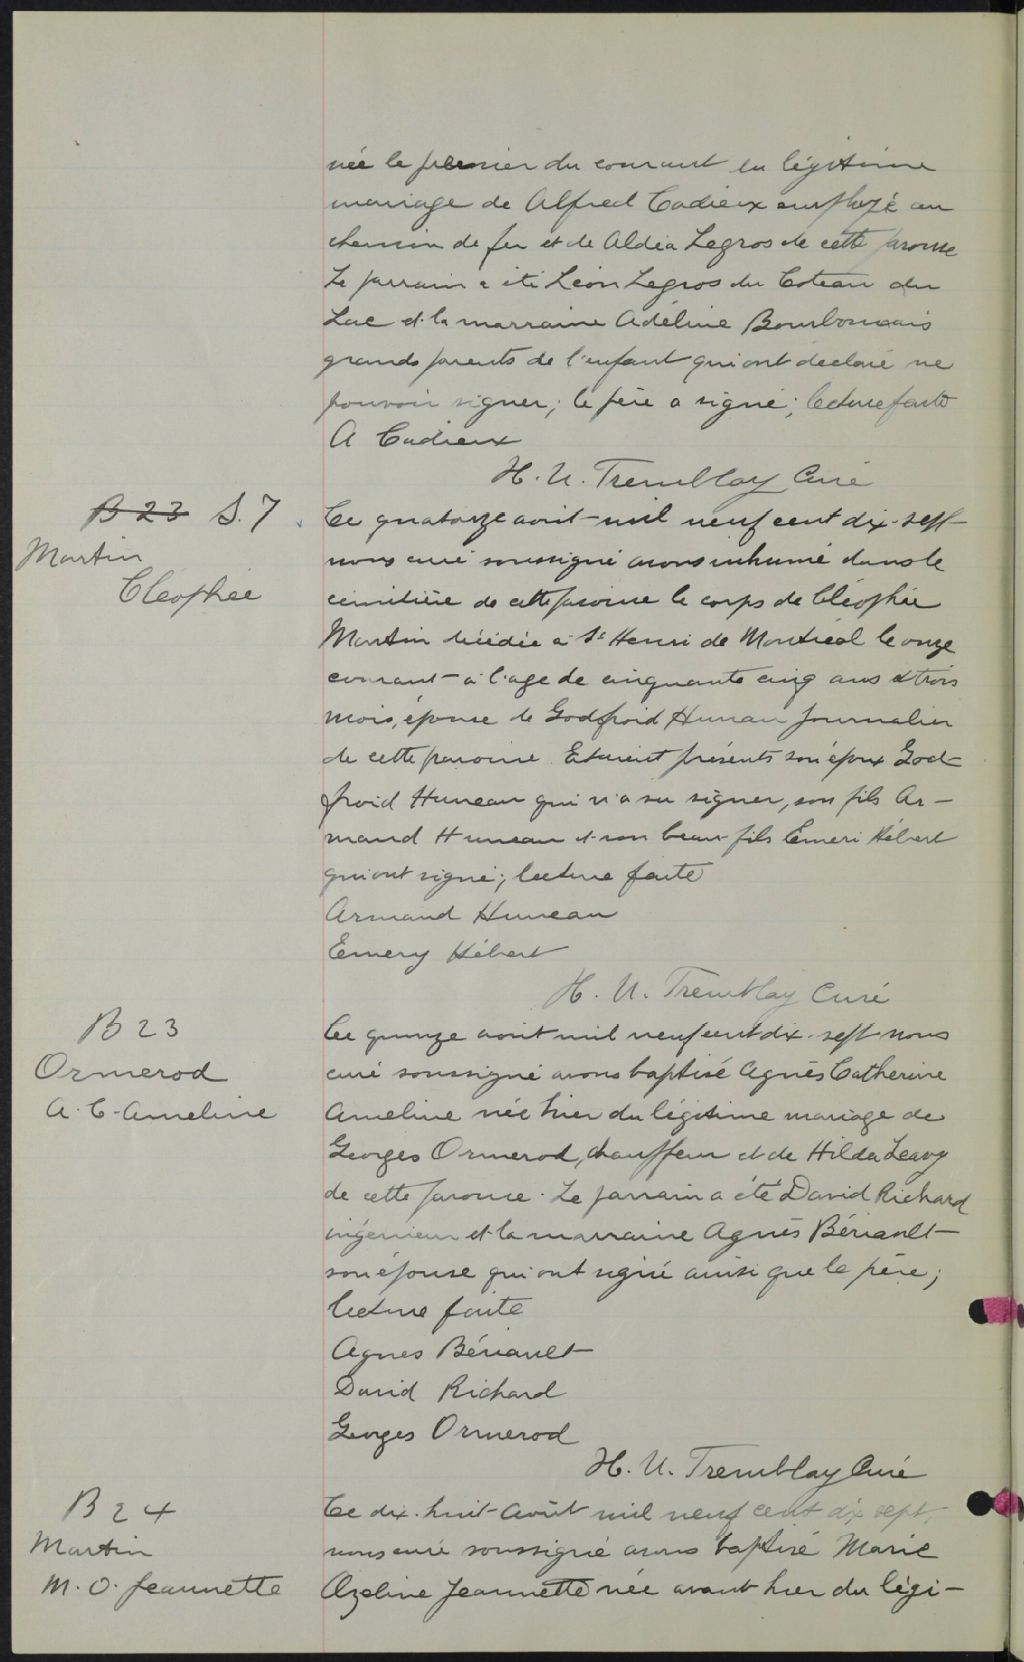 née le premier du courant en légitime
mariage de Alfred Cadieux employé au
chemin de fer et de Aldéa Legros de cette paroisse
Le parrain a été Léon Legros du Coteau du
Lac et la marraine Adéline Bourbonnais
grands parents de l'enfant qui ont déclaré ne
pouvoir signer; le père a signé; lecture faite
A Cadieux
H. U. Tremblay Curé
B 23 S. 7
Martin
Cléophée
Ce quatorze août mil neuf cent dix-sept
nous curé soussigné avons inhumé dans le
cimitière de cette paroisse le corps de Cléophée
Martin décédée à St Henri de Montréal le onze
courant à l'age de cinquante cinq ans et trois
mois, épouse de Godfroid Huneau journalier
de cette paroisse. Etaient présents son époux God-
froid Huneau qui n'a su signer, son fils Ar-
mand Huneau et son beau-fils Emeri Hébert
qui ont signé; lecture faite
Armand Huneau
Emery Hébert
H. U. Tremblay Curé
B 23
Ormerod
A. C. Ameline
Ce quinze août mil neuf cent dix-sept nous
curé soussigné avons baptisé Agnès Catherine
Ameline née hier du légitime mariage de
Georges Ormerod, chauffeur et de Hilda Leavy
de cette paroisse. Le parrain a été David Richard
ingénieur et la marraine Agnès Bériault
son épouse qui ont signé ainsi que le père;
lecture faite
Agnes Bériault
David Richard
Georges Ormerod
H. U. Tremblay Curé
B 24
Martin
M. O. Jeannette
Ce dix-huit Août mil neuf cent dix sept,
nous curé soussigné avons baptisé Marie
Ozeline Jeannette née avant hier du légi-